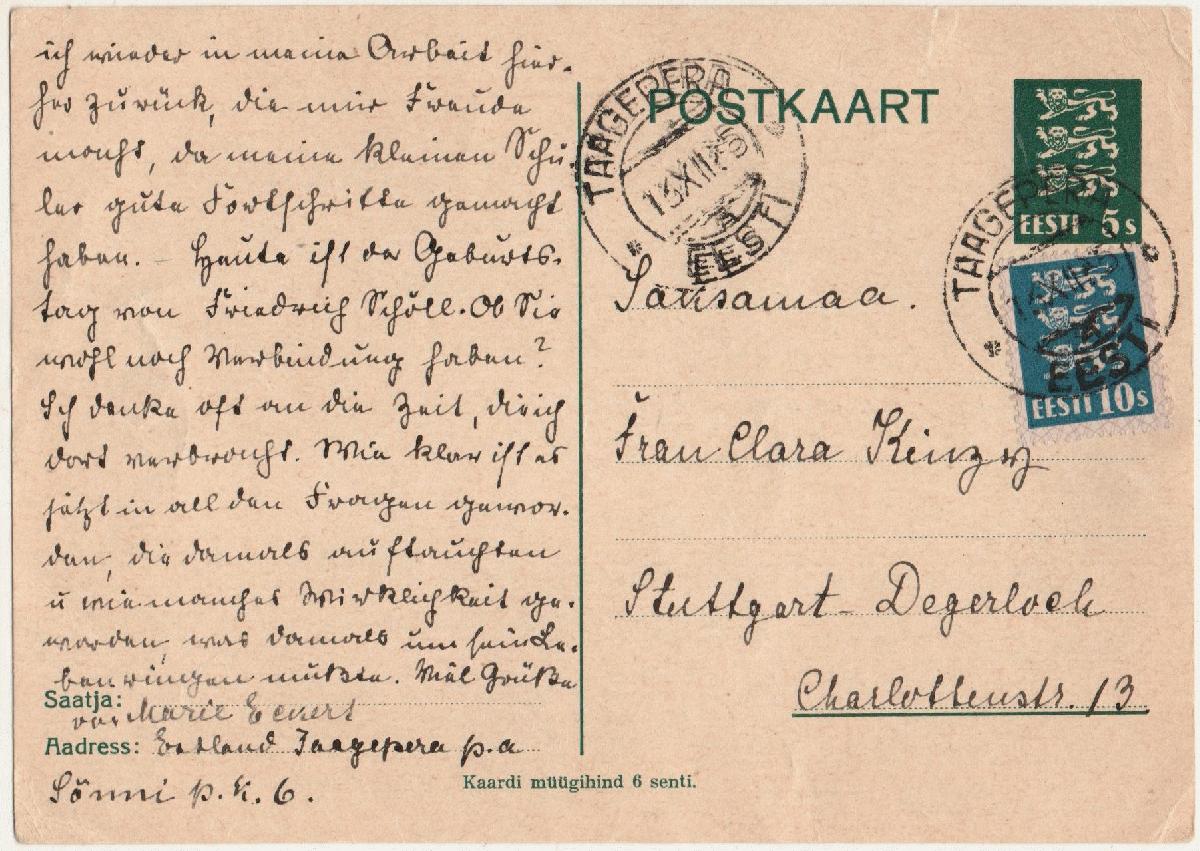 ich wieder in meine Arbeit hier-
her zurück, die mir Freude
macht, da meine kleinen Schü-
ler gute Fortschritte gemacht
haben. – Heute ist der Geburts-
tag von Friedrich Schöll. Ob Sie
wohl noch Verbindung haben?
Ich denke oft an die Zeit, die ich
dort verbracht. Wie klar ist es
jetzt in all den Fragen gewor-
den, die damals auftauchten
u wie manches Wirklichkeit ge-
worden, was damals um sein Le-
ben ringen mußte. Viel Grüße
Saatja:
von Marie Eckert
Aadress: Estland Taagepera p.a
Sönni p.k. 6.
POSTKAART
TAAGEPERA
13 XII 35
EESTI
EESTI 5 s
TAAGEPERA
EESTI
EESTI 10 s
Saksamaa.
Frau Clara Kinzy
Stuttgart – Degerloch
Charlottenstr. 13
Kaardi müügihind 6 senti.